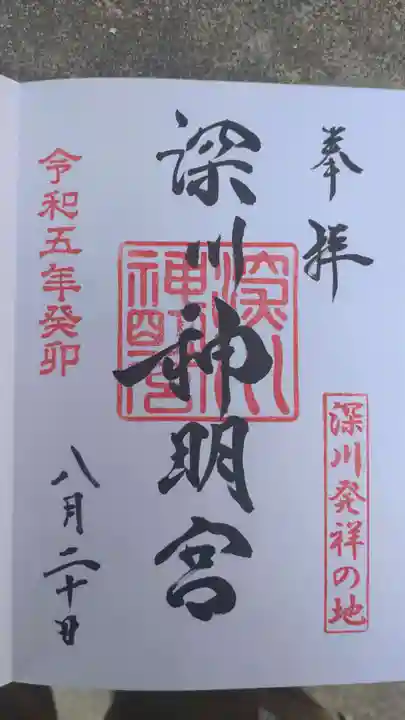 奉拝
深川発祥の地
深川神明宮
深川神明宮
令和五年癸卯
八月二十日